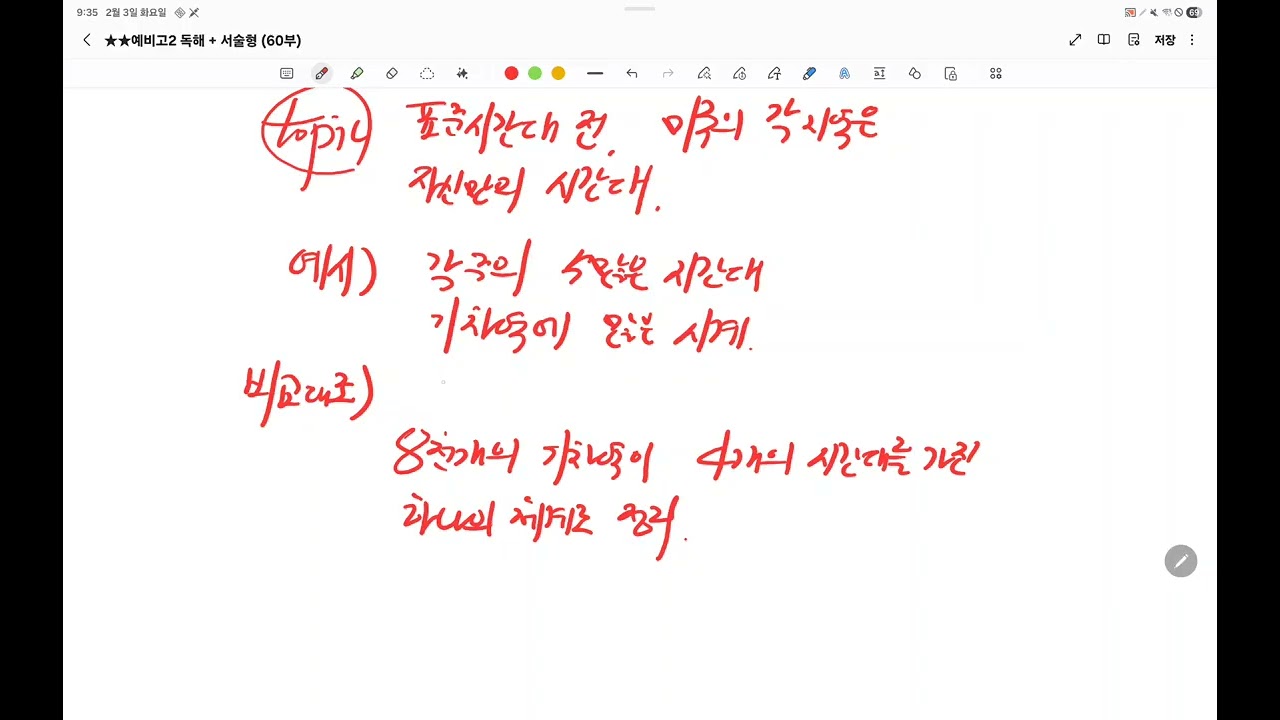 9:35 2월 3일 화요일
69
★★예비고2 독해 + 서술형 (60부)
저장
topic 표준시간대 전. 미주의 각 지역은
자신만의 시간대.
예시) 각 주의 수많은 시간대
기차역에 많은 시계.
비교대조)
8천개의 기차역이 4개의 시간대를 가진
하나의 체계로 정리.